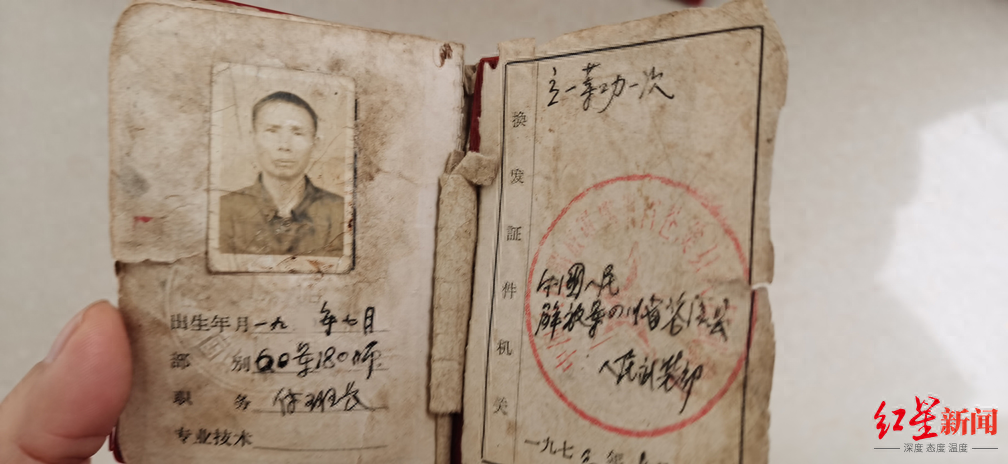 出生年月一九 年七月
部 别60军180师
职 务付班长
专业技术
立一等功一次
换发证件机关
中国人民
解放军四川省苍溪县
人民武装部
一九七 年
红星新闻
深度 态度 温度